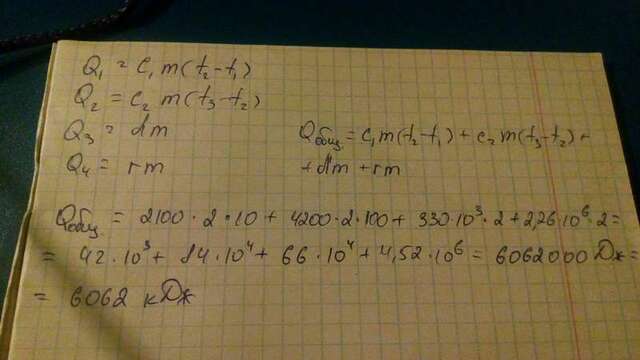 Q₁ = c₁ m(t₂-t₁)
Q₂ = c₂ m(t₃-t₂)
Q₃ = λm
Q₄ = rm
Qобщ = c₁m(t₂-t₁) + c₂m(t₃-t₂) +
+ λm + rm
Qобщ = 2100·2·10 + 4200·2·100 + 330·10³·2 + 2,26·10⁶·2 =
= 42·10³ + 84·10⁴ + 66·10⁴ + 4,52·10⁶ = 6062000 Дж =
= 6062 кДж